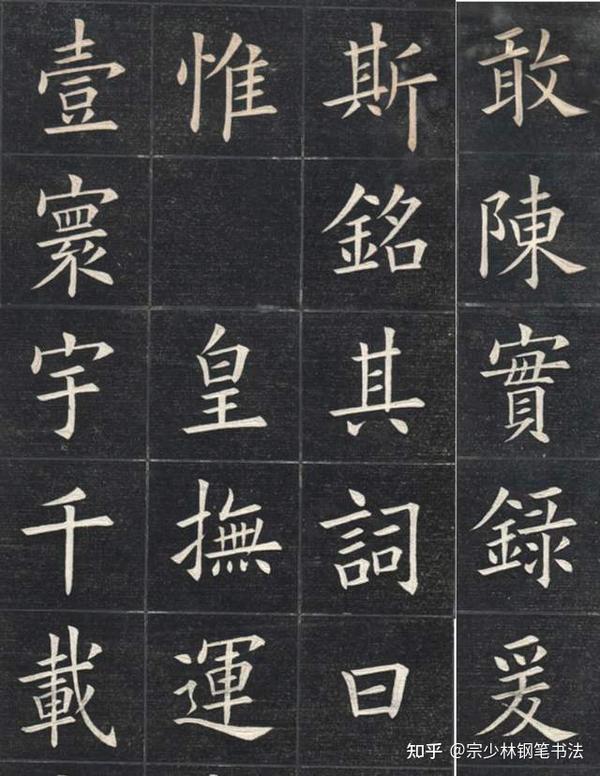 敢陳實錄爰
斯銘其詞曰
惟皇撫運
壹寰宇千載
知乎 @宗少林钢笔书法